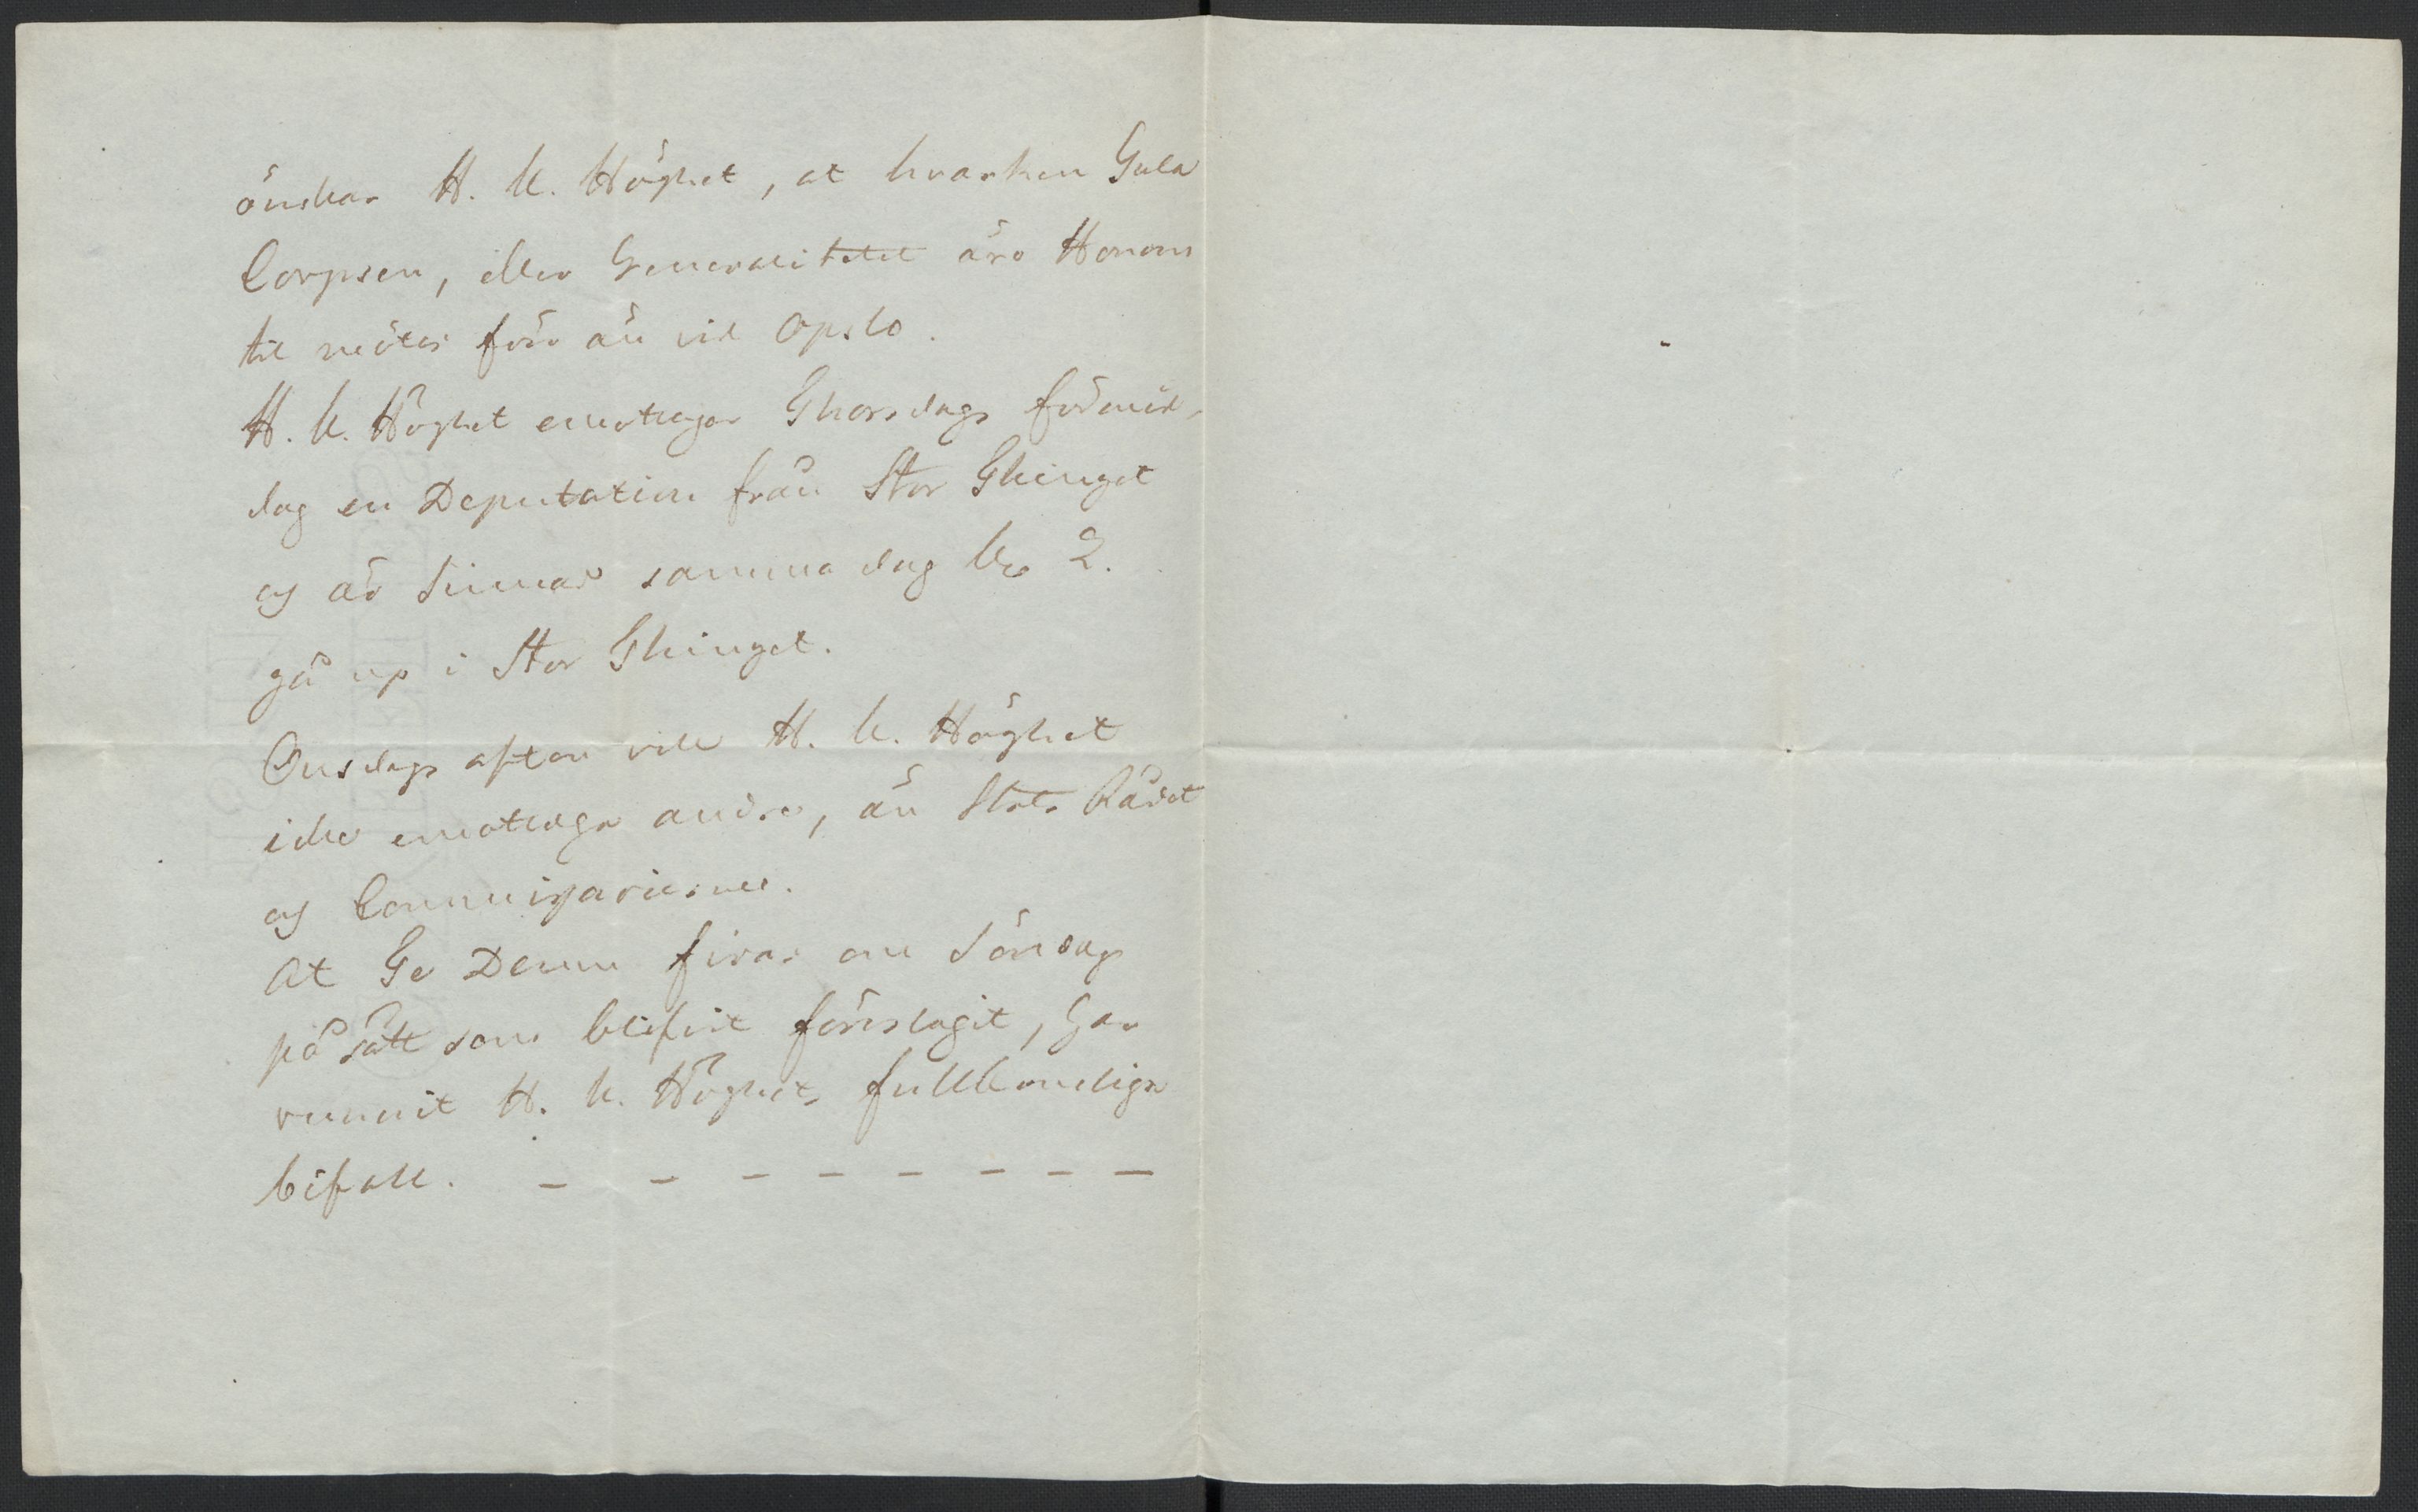 önskar H. K. Höghet, at hvarken Gula
Corpsen, eller Generalitetet äro Honom
til mötes förr än vid Opslo.
H. K. Höghet emottager Thorsdags förmid-
dag en Deputation från Stor Thinget
og är sinnad samma dag Kl 2.
gå up i Stor Thinget.
Onsdags afton vill H. K. Höghet
icke emottaga andre, än Stats Rådet
og Commissarierne.
At Te Deum firas om Söndag
på sätt som blifvit föreslagit, har
vunnit H. K. Höghets fullkomliga
bifall. – – – – – – – –